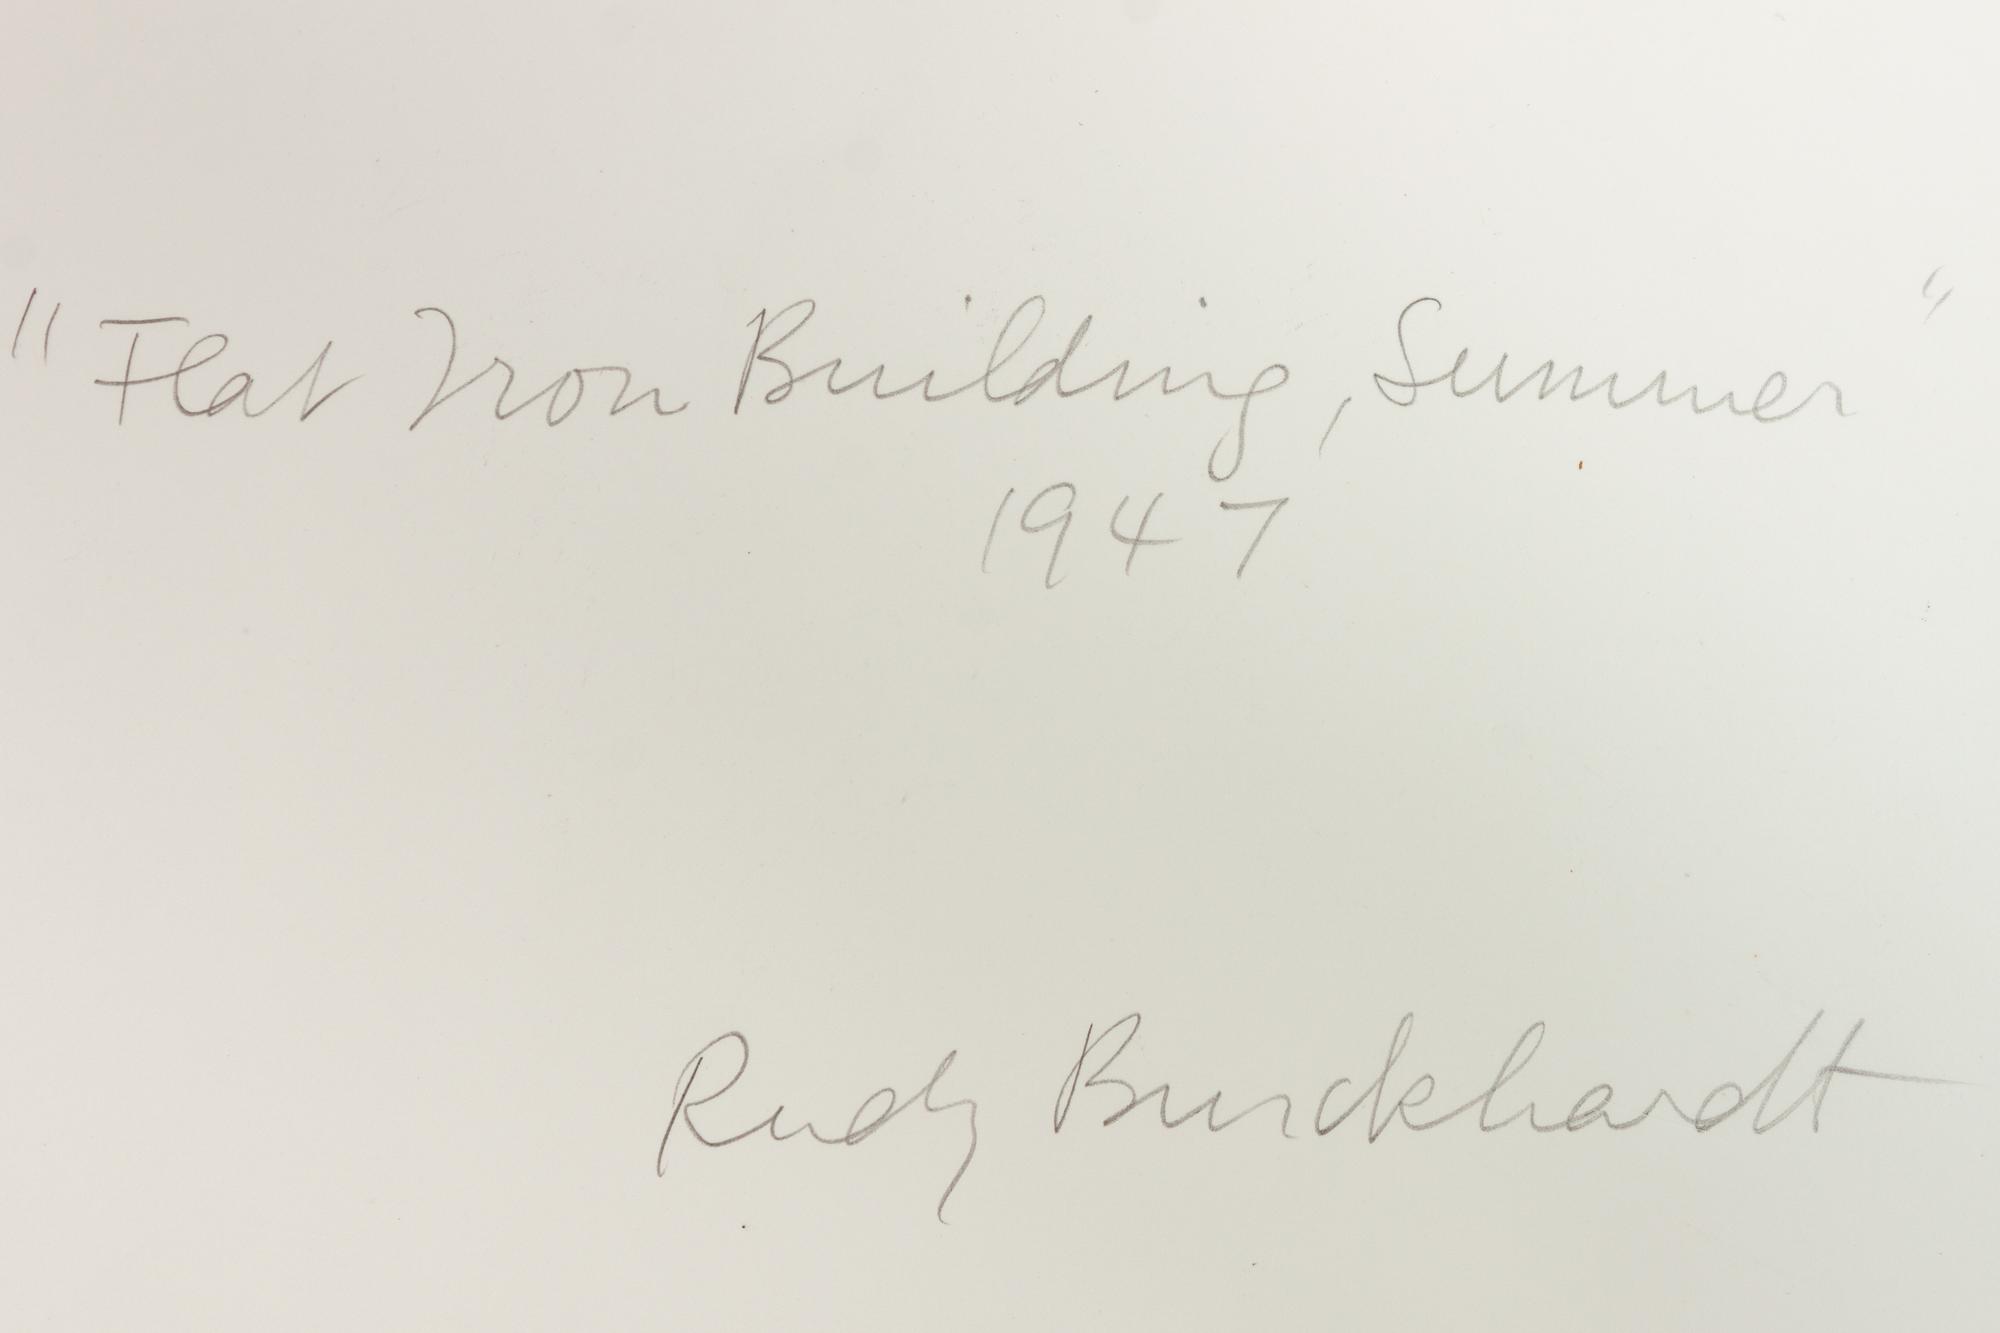 "Flat Iron Building, Summer"
1947
Rudy Burckhardt